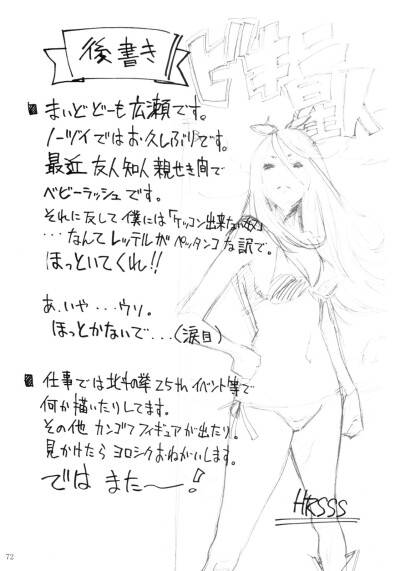 後書き
まいどどーも広瀬です。
ノーヅイではお久しぶりです。
最近 友人知人 親せき間で
ベビーラッシュです。
それに反して僕には「ケッコン出来ない奴」
･･･なんてレッテルがペッタンコな訳で。
ほっといてくれ!!
あ、いや…ウソ。
ほっとかないで...(涙目)
仕事では北斗の拳25th イベント等で
何か描いたりしてます。
その他 カンゴフフィギュアが出たり。
見かけたらヨロシクおねがいします。
では また〜!
HRSSS
72